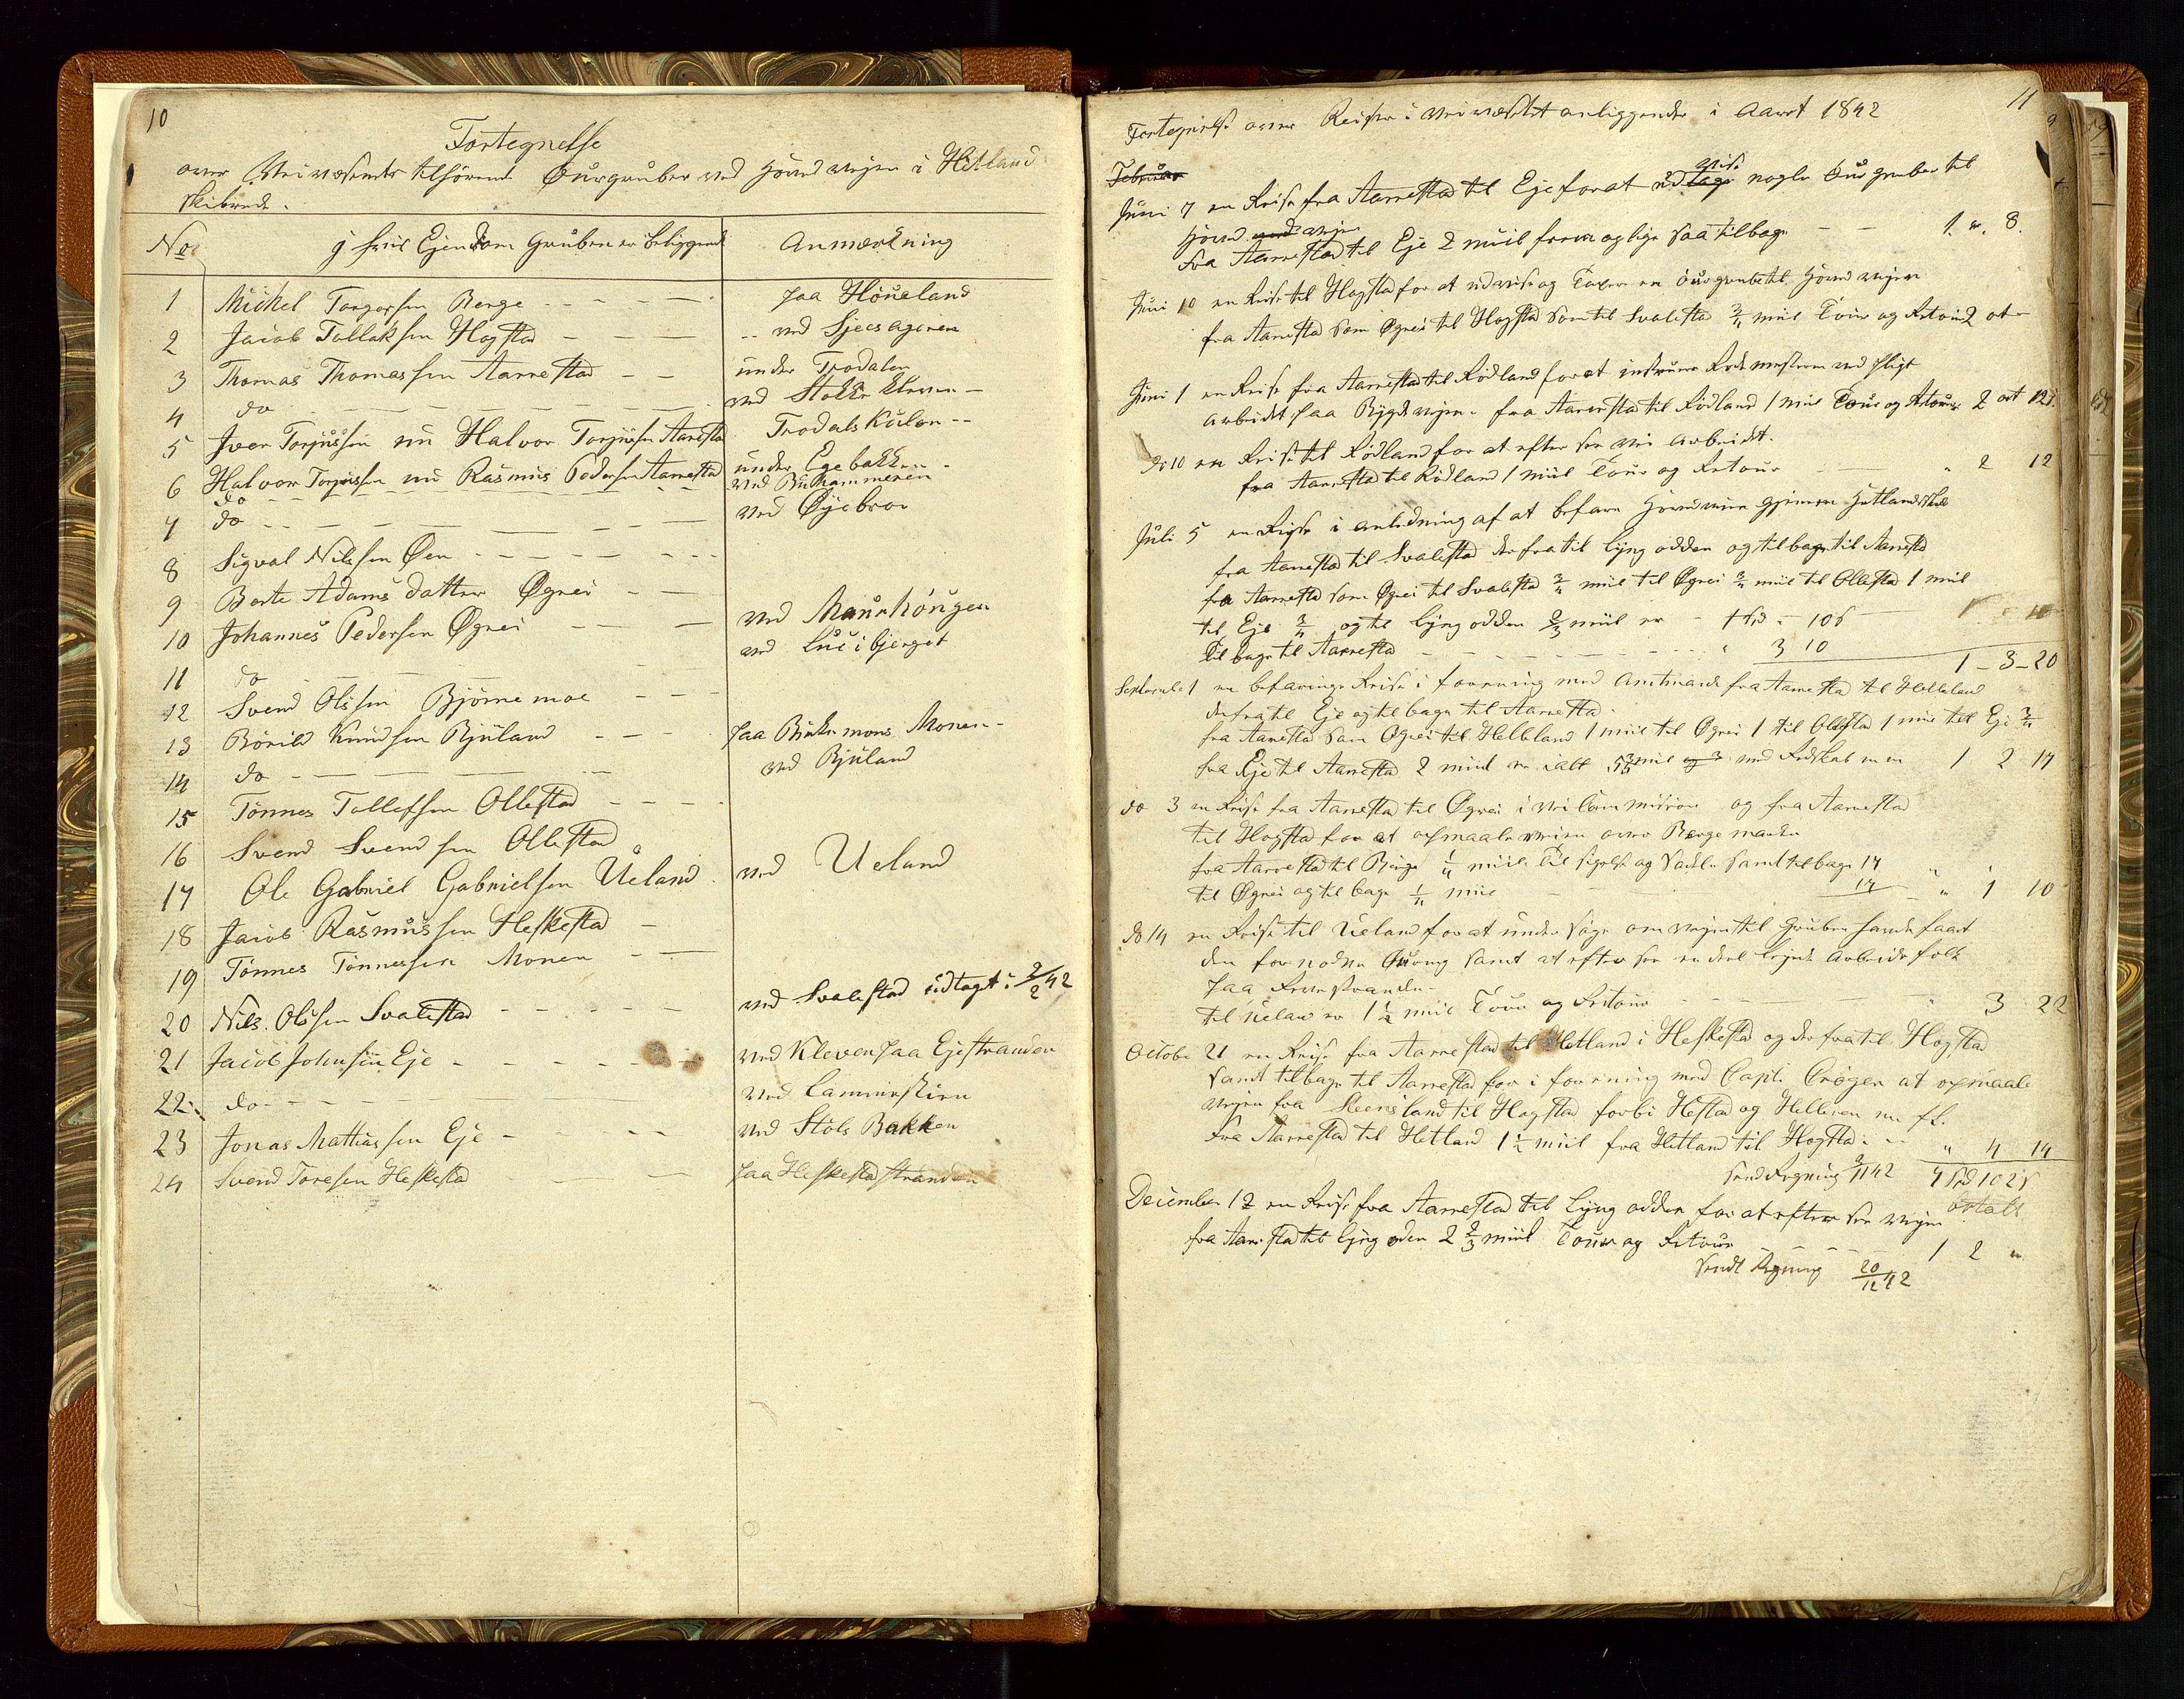 10
Fortegnelse
over Veivæsenets tilhørende Øurgruber ved Hovedveien i Hetland
Skibrede.
No
J hvis Ejendom Gruben er beliggende
Anmærkning
1 Michel Torgersen Berge - - - - paa Høueland
2 Jacob Tollaksen Hogstad - - - - ved Sjecsageren
3 Thomas Thomassen Aarrestad - - under Trodalen
4 do - - - - ved Stokke Kleven -
5 Iver Torjussen nu Halvor Torjusen Aarestad Trodals Kulen - -
6 Halvor Torjussen nu Rasmus Pedersen Aarrestad under Egebakken -
do - - - - ved Buhammeren
7 do - - - - ved Øyebroe
8 Sigval Nilsen Øen - - - -
9 Berte Adams datter Øgrei - -
10 Johannes Pedersen Øgrei - - - ved Maurhougen
11 do - - - ved Lusibjerget
12 Svend Olssen Bjørnemoe - - -
13 Börild Knudsen Bjuland - - - paa Birkemons Monen -
14 do - - - - ved Bjuland
15 Tønnes Tollefsen Ollestad - - -
16 Svend Svendsen Ollestad
17 Ole Gabriel Gabrielsen Ueland ved Ueland
18 Jacob Rasmussen Heskestad -
19 Tønnes Tønnessen Monen - -
20 Nils Olssen Svalestad - - - - ved Svalestad udtaget i 2/2 42
21 Jacob Johnsen Eje - - - - ved Kleven paa Ejestranden
22 do - - - ved Laminskien
23 Jonas Mathiassen Eje - - - ved Støls Bakken
24 Svend Toresen Heskestad - - paa Heskestadstranden
11
Fortegnelse over Reiser i Veivæsenets anliggender i Aaret 1842
Februar
Juni 7 en Reise fra Aarrestad til Eje for at udtage vise nogle Øurgruber til
Hoved ved vejen
fra Aarrestad til Eje 2 miil frem og lige saa tilbage - - 1 " 8.
Juni 10 en Reise til Hogstad for at udvise og Taxere en Øurgrube til Hovedvejen
fra Aarrestad som Øgrei til Hogstad som til Svalestad 3/4 miil Tour og Retour 2 ort -
Juni 1 en Reise fra Aarrestad til Rødland for at instruere Rodemesteren ved Pligt
arbeidet paa Bygdevejen. fra Aarrestad til Rødland 1 miil Tour og Retour 2 ort 12 s.
do 10 en Reise til Rødland for at efter see Vei Arbeidet.
fra Aarrestad til Rødland 1 miil Tour og Retour - - " 2 12
Juli 5 en Reise i anledning af at befare Hovedveien gjennem Hetlands Skibr
fra Aarrestad til Svalestad derfra til Lyngodden og tilbage til Aarrestad
fra Aarrestad som Øgrei til Svalestad 3/4 miil til Øgrei 3/4 miil til Ollestad 1 miil
til Eje 3/4 og til Lyngodden 2/3 miil er - 1 Spd - 10 s
Tilbage til Aarrestad - - - - " 3 10
1 - 3 - 20
September 1 en befarings Reise i forening med Amtmand fra Aarrestad til Helleland
derfra til Eje og tilbage til Aarrestad.
fra Aarrestad som Øgrei til Helleland 1 miil til Øgrei 1 til Ollestad 1 miil til Eje 3/4
fra Eje til Aarrestad 2 miil er ialt miil med Redskab 1 2 17
do 3 en Reise fra Aarrestad til Øgrei i Veicommission og fra Aarrestad
til Hogstad for at opmaale veien over Berge marken
fra Aarrestad til Berge 1/4 miil samt tilbage 14
til Øgrei og tilbage 1/4 miil 14 " 1 10
do 14 en Reise til Ueland for at undersøge om vejen til Gruben havde faaet
den fornødne samt at efter see en deel leyede Arbeidsfolk
paa
til Ueland er 1 1/2 miil Tour og Retour - - " 3 22
October 21 en Reise fra Aarrestad til Hetland i Heskestad og derfra til Hogstad
samt tilbage til Aarrestad for i forening med Capt. Krøger at opmaale
vejen fra Steensland til Hogstad forbi Hestad og Helleren
fra Aarrestad til Hetland 1 1/2 miil fra Hetland til Hogstad - - " 4 14
sendt Regning 42 7 Spd 102 s
betalt
December 12 en Reise fra Aarrestad til Lyngodden for at efter see vejen
fra Aarrestad til Lyngoden 2 2/3 miil Tour og Retour - - 1 2 "
sendt Regning 20/12 42